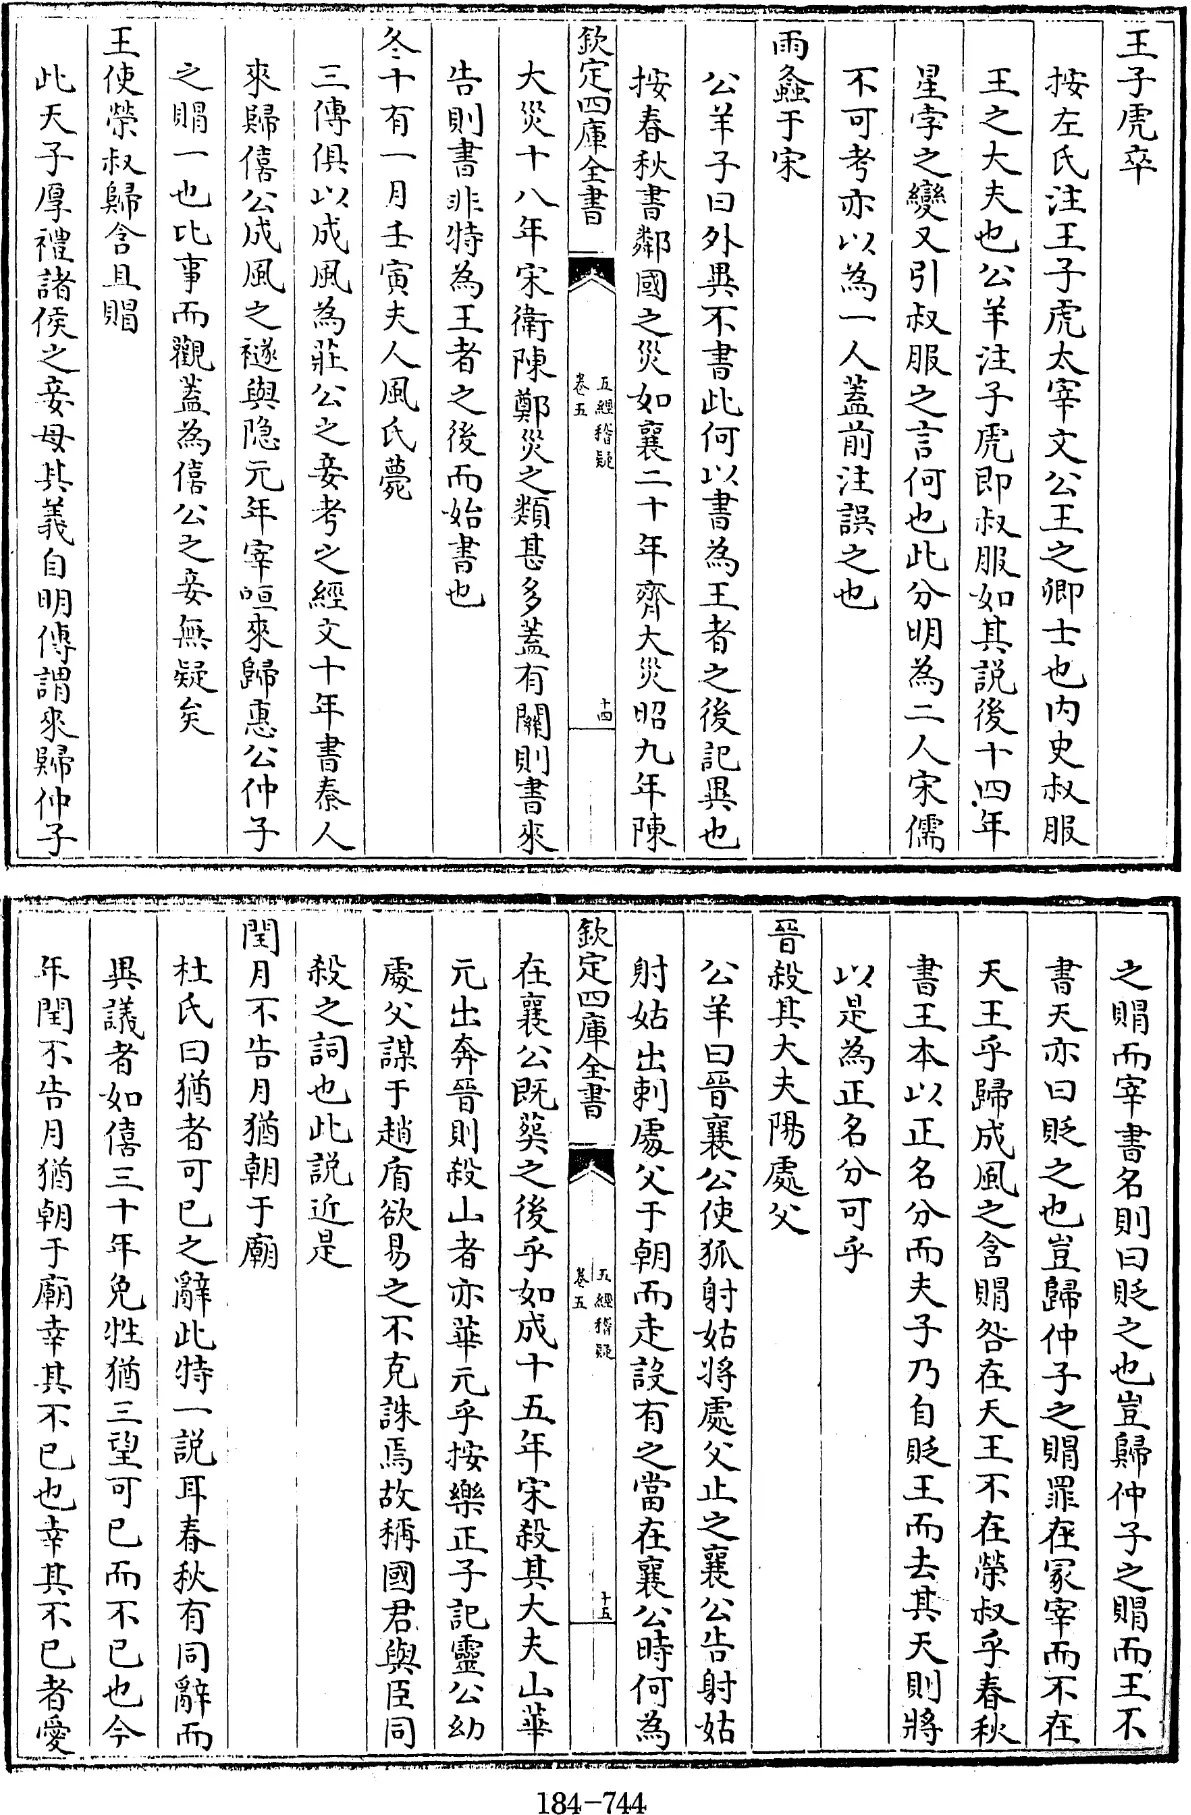 王子虎卒
按左氏注王子虎太宰文公王之卿士也内史叔服
王之大夫也公羊注子虎即叔服如其説後十四年
星孛之變又引叔服之言何也此分明為二人宋儒
不可考亦以為一人蓋前注誤之也
雨螽于宋
公羊子曰外異不書此何以書為王者之後記異也
按春秋書鄰國之災如襄二十年齊大災昭九年陳
欽定四庫全書
五經稽疑
卷五
十四
大災十八年宋衛陳鄭災之類甚多蓋有關則書來
告則書非特為王者之後而始書也
冬十有一月壬寅夫人風氏薨
三傳俱以成風為莊公之妾考之經文十年書秦人
來歸僖公成風之襚與隐元年宰咺來歸惠公仲子
之賵一也比事而觀蓋為僖公之妾無疑矣
王使榮叔歸含且賵
此天子厚禮諸侯之妾母其義自明傳謂來歸仲子
之賵而宰書名則曰貶之也豈歸仲子之賵而王不
書天亦曰貶之也豈歸仲子之賵罪在冢宰而不在
天王乎歸成風之含賵咎在天王不在榮叔乎春秋
書王本以正名分而夫子乃自貶王而去其天則將
以是為正名分可乎
晉殺其大夫陽處父
公羊曰晉襄公使狐射姑將處父止之襄公告射姑
射姑出刺處父于朝而走設有之當在襄公時何為
欽定四庫全書
五經稽疑
卷五
十五
在襄公既葬之後乎如成十五年宋殺其大夫山華
元出奔晉則殺山者亦華元乎按樂正子記靈公幼
處父謀于趙盾欲易之不克誅焉故稱國君與臣同
殺之詞也此説近是
閏月不告月猶朝于廟
杜氏曰猶者可已之辭此特一説耳春秋有同辭而
異議者如僖三十年免牲猶三望可已而不已也今
年閏不告月猶朝于廟幸其不已也幸其不已者愛
184-744